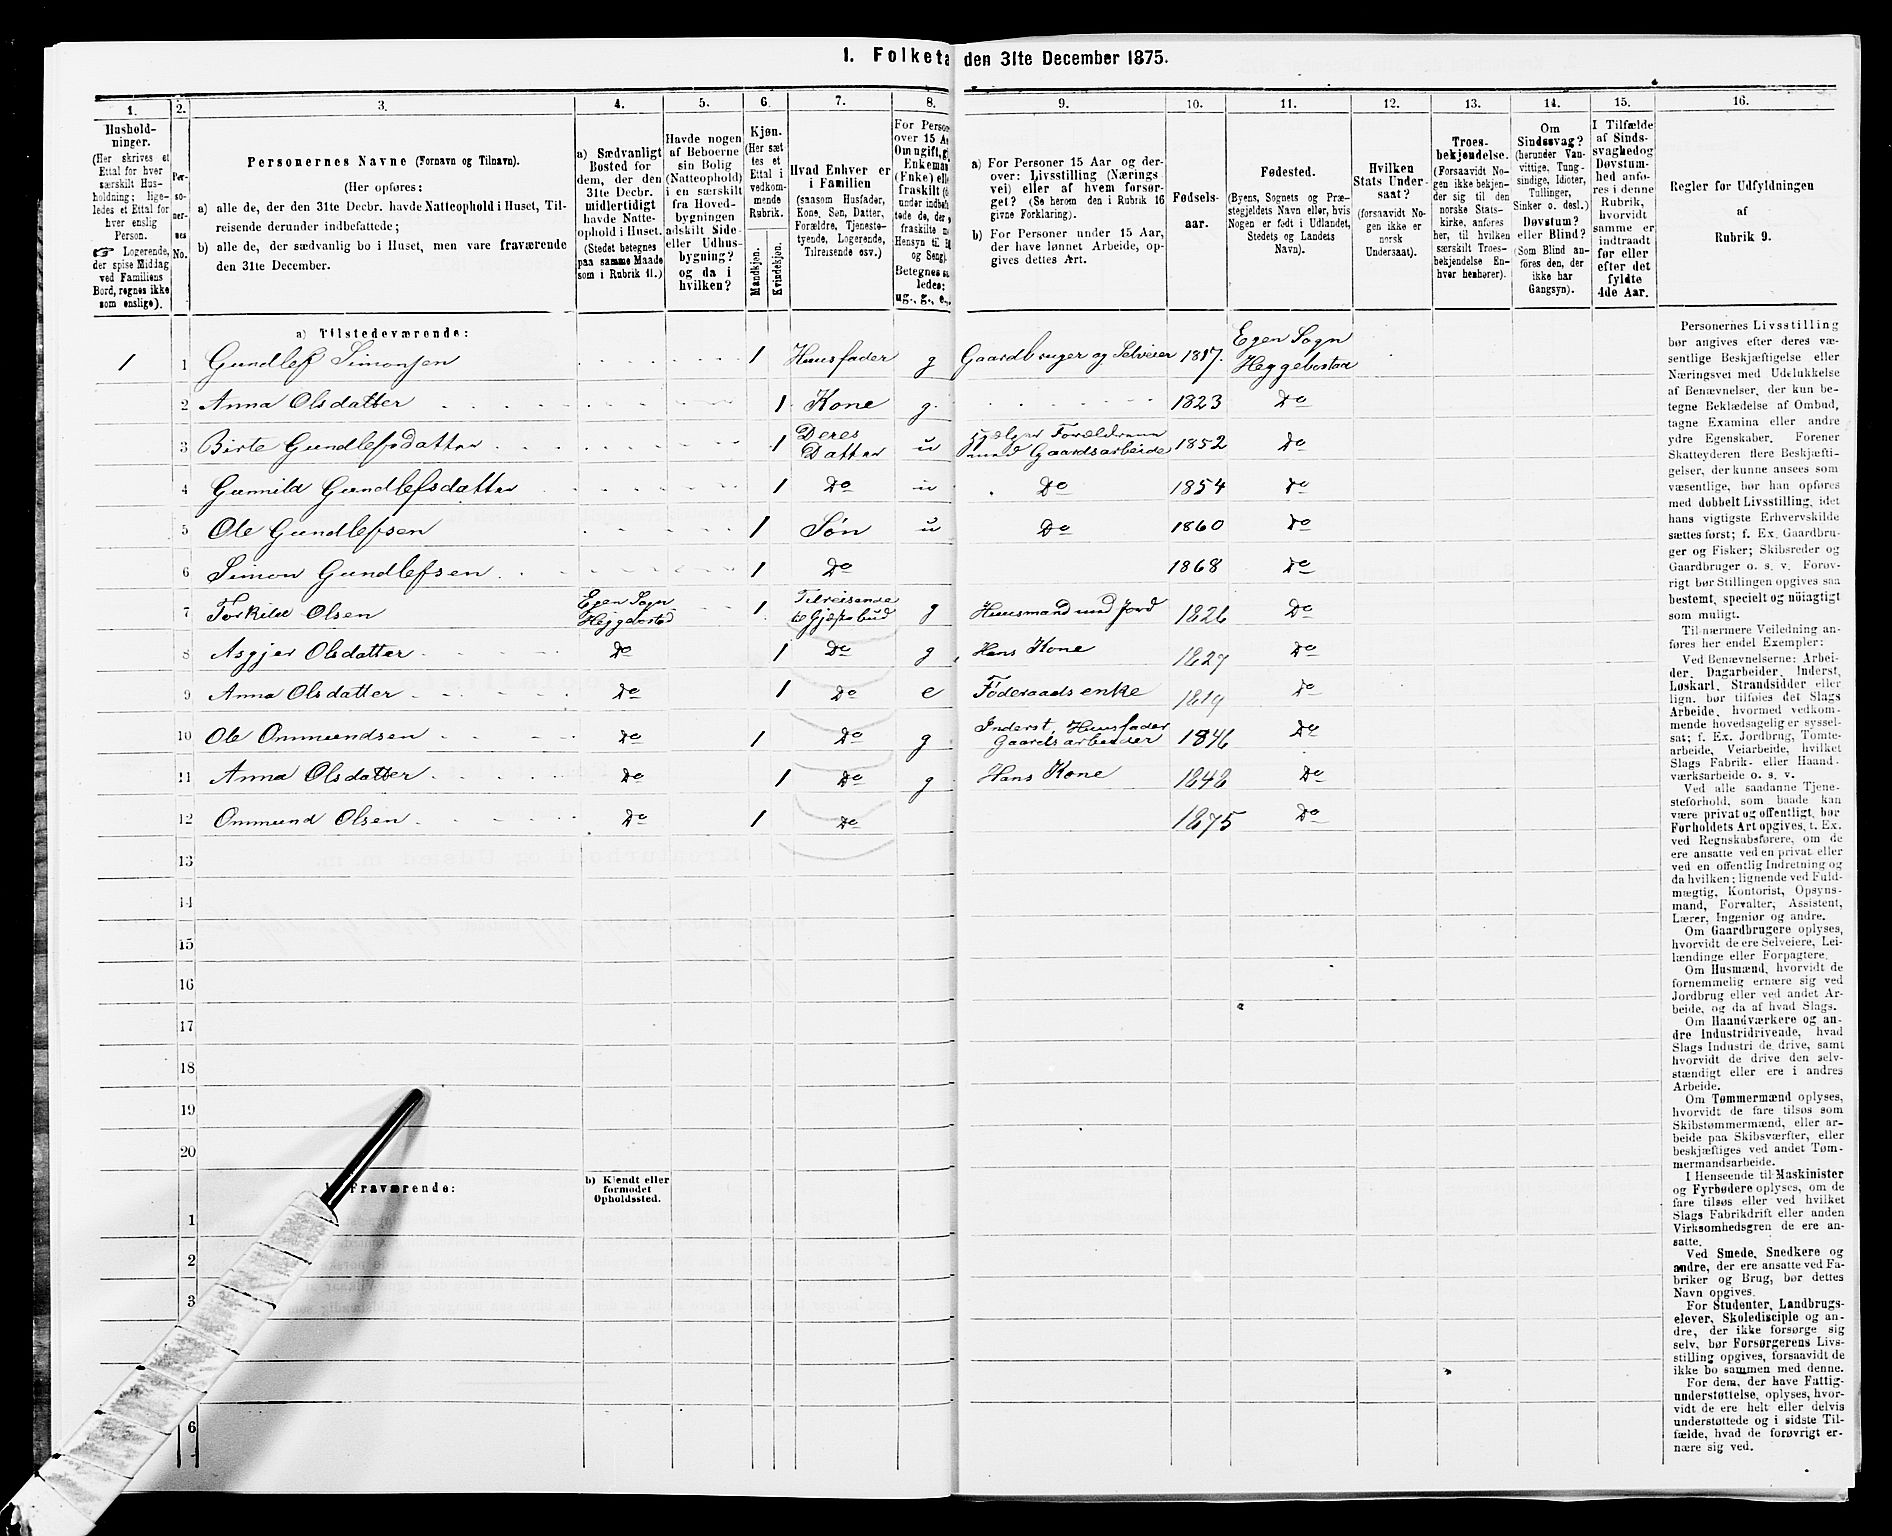 I. Folketæ
den 31te December 1875.
1.
Hushold-
ninger.
(Her skrives et
Ettal for hver
særskilt Hus-
holdning; lige-
ledes et Ettal for
enslig
Person.
☞ Logerende,
der spise Middag
ved Familiens
Bord, regnes ikke
som enslige).
2.
Per-
so-
ner-
nes
No.
3.
Personernes Navne (Fornavn og Tilnavn).
(Her opføres:
a) alle de, der den 31te Decbr. havde Natteophold i Huset, Til-
reisende derunder indbefattede;
b) alle de, der sædvanlig bo i Huset, men vare fraværende
den 31te December.
4.
a) Sædvanligt
Bosted for
dem, der den
31te Decbr.
midlertidigt
havde Natte-
ophold i Huset.
(Stedet betegnes
paa samme Maade
som i Rubrik 11.)
5.
Havde nogen
af Beboerne
sin Bolig
(Natteophold)
i en særskilt
fra Hoved-
bygningen
adskilt Side-
eller Udhus-
bygning?
og da i
hvilken?
6.
Kjøn.
(Her sæt-
tes et
Ettal i
vedkom-
mende
Rubrik.
Mandkjøn.
Kvindekjøn.
7.
Hvad Enhver er
i Familien
(saasom Husfader,
Kone, Søn, Datter,
Forældre, Tjeneste-
tyende, Logerende,
Tilreisende osv.)
8.
For Person
over 15 A
Om ugift, g
Enkeman
(Enke) ell
fraskilt (
under indbef
tede de, der
fraskilte
Hensyn til B
og Seng).
Betegnes s
ledes:
ug., g., e.,
9.
a) For Personer 15 Aar og der-
over: Livsstilling (Nærings
vei) eller af hvem forsør-
get? (Se herom den i Rubrik 16
givne Forklaring).
b) For Personer under 15 Aar,
der have lønnet Arbeide, op-
gives dettes Art.
10.
Fødsels-
aar.
11.
Fødested.
(Byens, Sognets og Præ-
stegjeldets Navn eller, hvis
Nogen er født i Udlandet,
Stedets og Landets
Navn).
12.
Hvilken
Stats Under-
saat?
(forsaavidt No-
gen ikke er
norsk
Undersaat).
13.
Troes-
bekjendelse.
(Forsaavidt No-
gen ikke bekjen-
der sig til den
norske Stats-
kirke, anføres
her, til hvilken
særskilt Troes-
bekjendelse En-
hver henhører).
14.
Om
Sindssvag?
(herunder Van-
vittige, Tung-
sindige, Idioter,
Tullinger,
Sinker o. desl.)
Døvstum?
eller Blind?
(Som Blind an-
føres den, der
ikke har
Gangsyn).
15.
I Tilfælde
af Sinds-
svaghed og
Døvstum-
hed anfø-
res i denne
Rubrik,
hvorvidt
samme er
indtraadt
før eller
efter det
fyldte
4de Aar.
16.
Regler for Udfyldningen
af
Rubrik 9.
a) Tilstedeværende:
1 1 Gundlef Simonsen 1 Huusfader g Gaardbruger og Selveier 1817. Egen Sogn Heggebostad
2 Anna Olsdatter 1 Kone g. 1823 Do
3 Birte Gundlefsdatter 1 Deres Datter u Hjælper Forældrene med Gaardsarbeide 1852 Do
4 Gunnild Gundlefsdatter 1 Do u Do 1854 Do
5 Ole Gundlefsen 1 Søn u Do 1860 Do
6 Simon Gundlefsen. 1 Do 1868 Do
7 Torkild Olsen Egen Sogn Heggebostad 1 Tilreisende til Gjæstebud g Huusmand med Jord 1826 Do
8 Asgjer Olsdatter Do 1 Do g Hans Kone 1827 Do
9 Anna Olsdatter Do 1 Do e Föderaads enke 1819 Do
10 Ole Ommundsen Do 1 Do g Inderst, Huusfader Gaardsarbeider 1846 Do
11 Anna Olsdatter Do 1 Do g Hans Kone 1848 Do
12 Ommund Olsen Do 1 Do 1875 Do
13
14
15
16
17
18
19
20
Fraværende:
b) Kjendt eller
formodet
Opholdssted.
1
2
3
6
Personernes Livsstilling
bør angives efter deres væ-
sentlige Beskjæftigelse eller
Næringsvei med Udelukkelse
af Benævnelser, der kun be-
tegne Beklædelse af Ombud,
tagne Examina eller andre
ydre Egenskaber. Forener
Skatteyderen flere Beskjæfti-
gelser, der kunne ansees som
væsentlige, bør han opføres
med dobbelt Livsstilling, idet
hans vigtigste Erhvervskilde
sættes først; f. Ex. Gaardbru-
ger og Fisker; Skibsreder og
Gaardbruger o. s. v. Forøv-
rigt bør Stillingen opgives saa
bestemt, specielt og nöiagtigt
som muligt.
Til nærmere Veiledning an-
føres her endel Exempler:
Ved Benævnelserne: Arbei-
der, Dagarbeider, Inderst,
Løskarl, Strandsidder eller
lign. bør tilføies det Slags
Arbeide, hvormed vedkom-
mende hovedsagelig er syssel-
sat; f. Ex. Jordbrug, Tomte-
arbeide, Veiarbeide, hvilket
Slags Fabrik- eller Haand-
værksarbeide o. s. v.
Ved alle saadanne Tjene-
steforhold, som baade kan
være privat og offentligt, bør
Forholdets Art opgives, t. Ex.
ved Regnskabsførere, om de
ere ansatte ved en privat eller
ved en offentlig Indretning og
da hvilken; lignende ved Fuld-
mægtig, Kontorist, Opsyns-
mand, Forvalter, Assistent,
Lærer, Ingeniør og andre.
Om Gaardbrugere oplyses,
hvorvidt de ere Selveiere, Lei-
lændinge eller Forpagtere.
Om Husmænd, hvorvidt de
fornemmelig ernære sig ved
Jordbrug eller ved andet Ar-
beide, og da af hvad Slags.
Om Haandværkere og an-
dre Industridrivende, hvad
Slags Industri de drive, samt
hvorvidt de drive den selv-
stændigt eller ere i andres
Arbeide.
Om Tømmermænd oplyses,
hvorvidt de fare tilsøs som
Skibstømmermænd, eller ar-
beide paa Skibsværfter, eller
beskjæftiges ved andet Tøm-
mermandsarbeide.
I Henseende til Maskinister
og Fyrbødere oplyses, om de
fare tilsøs eller ved hvilket
Slags Fabrikdrift eller anden
Virksomhedsgren de ere an-
satte.
Ved Smede, Snedkere og
andre, der ere ansatte ved Fa-
briker og Brug, bør dettes
Navn opgives.
For Studenter, Landbrugs-
elever, Skoledisciple og an-
dre, der ikke forsørge sig
selv, bør Forsørgerens Livs-
stilling opgives, forsaavidt de
ikke bo sammen med denne.
For dem, der have Fattig-
understøttelse, oplyses, hvor-
vidt de ere helt eller delvis
understøttede og i sidste Til-
fælde, hvad de forøvrigt er-
nære sig ved.